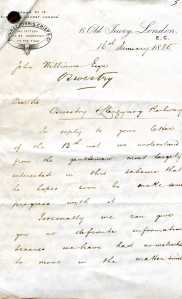 16 Old Jewry, London,
E.C.
16th January 1886
John Williams Esqre
Oswestry
Dear Sir
Oswestry & Railway
In reply to your letter
of the 13th inst we understand
from the gentleman most largely
interested in this scheme that
he hopes soon to make some
progress with it
Personally we can give
you no definite information
because we have had no
to move in the matter